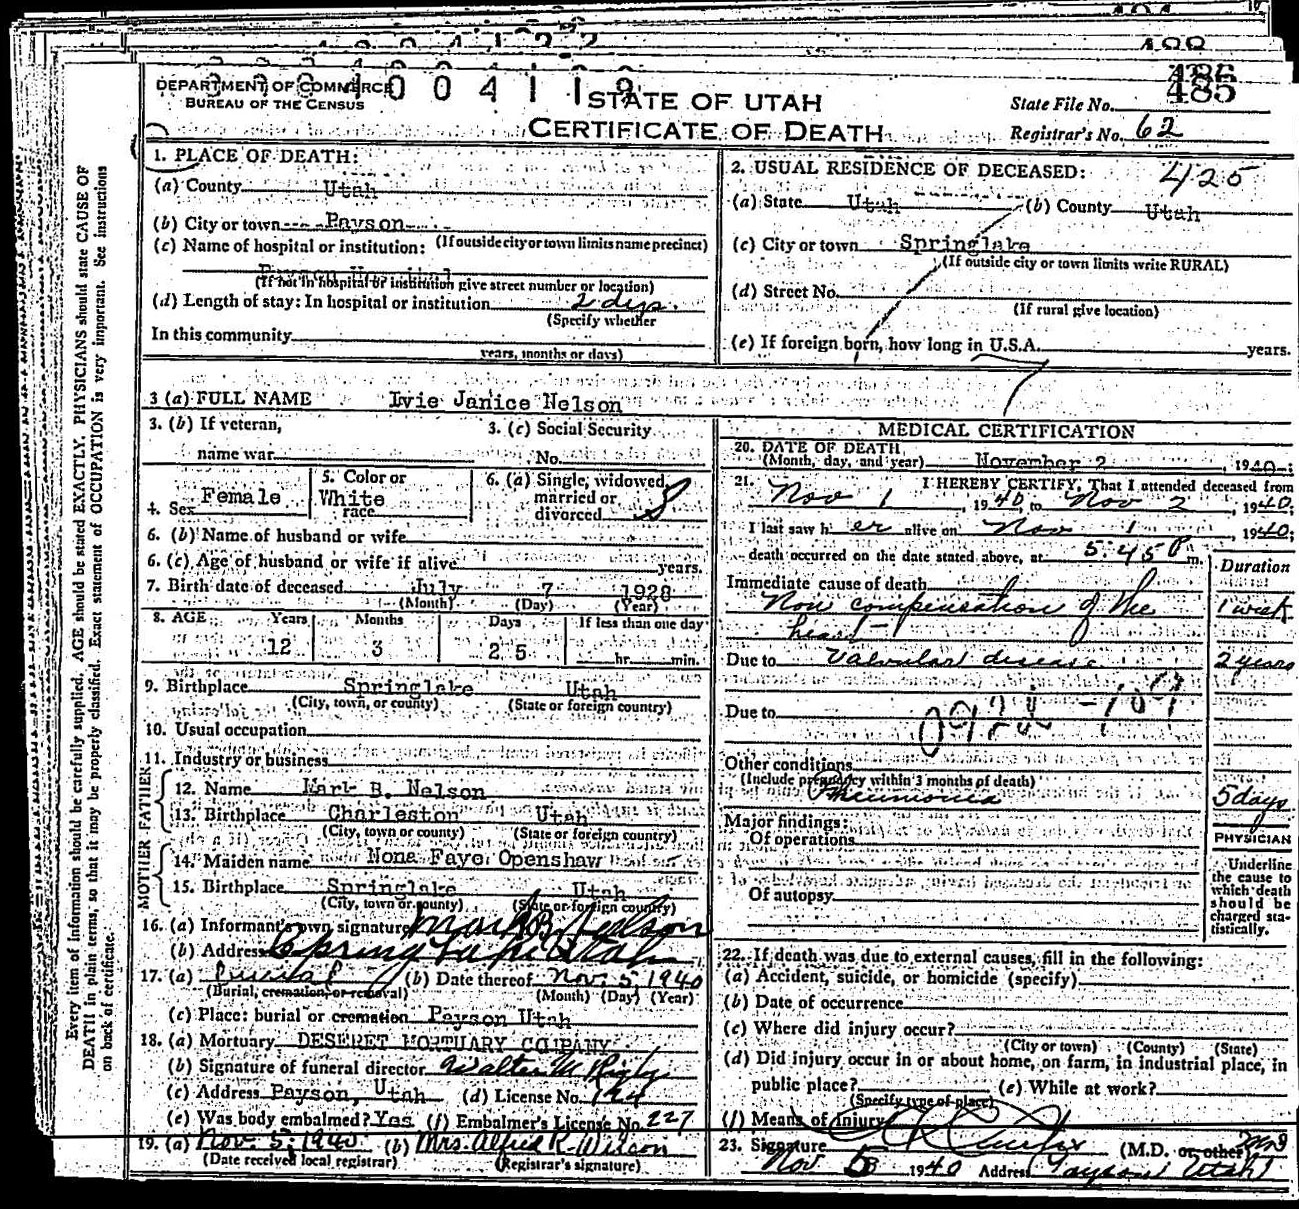 DEPARTMENT OF COMMERCE
BUREAU OF THE CENSUS
STATE OF UTAH
CERTIFICATE OF DEATH
485
State File No.
Registrar's No. 62
Every item of information should be carefully supplied. AGE should be stated EXACTLY. PHYSICIANS should state CAUSE OF
DEATH in plain terms, so that it may be properly classified. Exact statement of OCCUPATION is very important. See instructions
on back of certificate.
1. PLACE OF DEATH:
(a) County Utah
(b) City or town Payson
(If outside city or town limits name precinct)
(c) Name of hospital or institution:
Payson Hospital
(If not in hospital or institution give street number or location)
(d) Length of stay: In hospital or institution 2 dys.
(Specify whether
In this community
years, months or days)
2. USUAL RESIDENCE OF DECEASED: 425
(a) State Utah (b) County Utah
(c) City or town Springlake
(If outside city or town limits write RURAL)
(d) Street No.
(If rural give location)
(e) If foreign born, how long in U.S.A. years.
3 (a) FULL NAME Ivie Janice Nelson
3. (b) If veteran,
name war
3. (c) Social Security
No.
4. Sex Female
5. Color or
race White
6. (a) Single, widowed,
married or
divorced S
6. (b) Name of husband or wife
6. (c) Age of husband or wife if alive years.
7. Birth date of deceased July 7 1928
(Month) (Day) (Year)
8. AGE Years Months Days If less than one day
12 3 25 hr. min.
9. Birthplace Springlake Utah
(City, town, or county) (State or foreign country)
10. Usual occupation
11. Industry or business
FATHER
12. Name Mark B. Nelson
13. Birthplace Charleston Utah
(City, town or county) (State or foreign country)
MOTHER
14. Maiden name Nona Faye Openshaw
15. Birthplace Springlake Utah
(City, town or county) (State or foreign country)
16. (a) Informant's own signature Mark B. Nelson
(b) Address Spring Lake Utah
17. (a) burial (b) Date thereof Nov. 5, 1940
(Burial, cremation, or removal) (Month) (Day) (Year)
(c) Place: burial or cremation Payson Utah
18. (a) Mortuary DESERET MORTUARY COMPANY
(b) Signature of funeral director Walter M Rigby
(c) Address Payson, Utah (d) License No. 194
(e) Was body embalmed? Yes (f) Embalmer's License No. 227
19. (a) Nov. 5, 1940 (b) Mrs. Alfred R. Wilson
(Date received local registrar) (Registrar's signature)
MEDICAL CERTIFICATION
20. DATE OF DEATH
(Month, day, and year) November 2, 1940;
21. I HEREBY CERTIFY, That I attended deceased from
Nov 1, 1940, to Nov 2, 1940;
I last saw her alive on Nov 1, 1940;
death occurred on the date stated above, at 5:45 P m.
Duration
Immediate cause of death
Non compensation of the 1 week
heart
Due to Valvular disease 2 years
Due to
Other conditions
(Include pregnancy within 3 months of death)
Pneumonia 5 days
Major findings:
Of operations
Of autopsy
PHYSICIAN
Underline
the cause to
which death
should be
charged sta-
tistically.
22. If death was due to external causes, fill in the following:
(a) Accident, suicide, or homicide (specify)
(b) Date of occurrence
(c) Where did injury occur?
(City or town) (County) (State)
(d) Did injury occur in or about home, on farm, in industrial place, in
public place? (e) While at work?
(Specify type of place)
(f) Means of injury
23. Signature Curtis (M.D. or other)
Nov 1940 Address Payson Utah